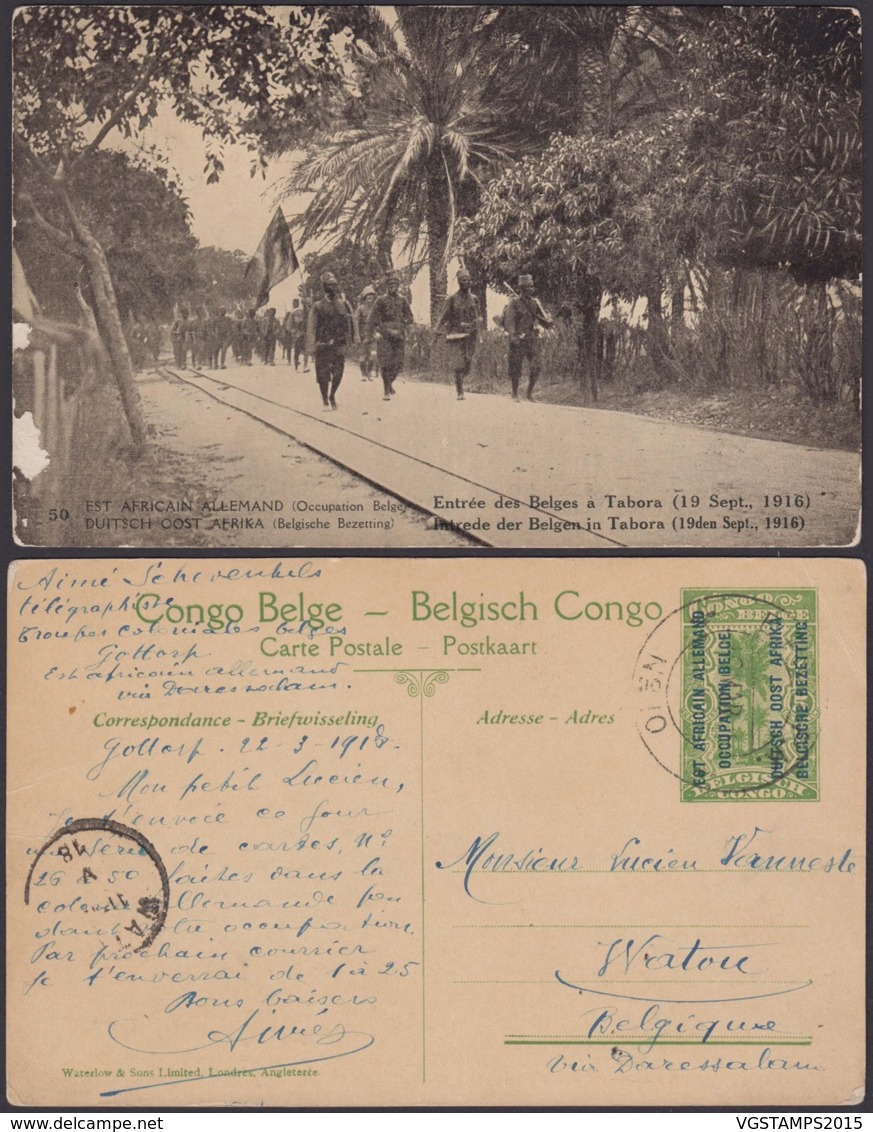 50 EST AFRICAIN ALLEMAND (Occupation Belge)
DUITSCH OOST AFRIKA (Belgische Bezetting)
Entrée des Belges à Tabora (19 Sept., 1916)
Intrede der Belgen in Tabora (19den Sept., 1916)
Aimé Schevenhels
télégraphiste
Troupes coloniales belges
Gottorp
Est africain allemand
via Daressalam.
Congo Belge – Belgisch Congo
Carte Postale – Postkaart
Correspondance - Briefwisseling
Adresse - Adres
CONGO
BELGE
EST AFRICAIN ALLEMAND
OCCUPATION BELGE
DUITSCH OOST AFRIKA
BELGISCHE BEZETTING
BELGISCH
CONGO
Gottorp. 22-3-1918.
Mon petit Lucien,
Je t'envoie ce jour
une série de cartes, Nº
26 à 50 faites dans la
colonie allemande
notre occupation.
Par prochain courrier
je t'enverrai de 1 à 25
Bons baisers
Aimé
WAT
18
Monsieur Lucien Vanneste
Watou
Belgique
via Daressalam
Waterlow & Sons Limited, Londres, Angleterre.
WWW.DELCAMPE.NET
VGSTAMPS2015